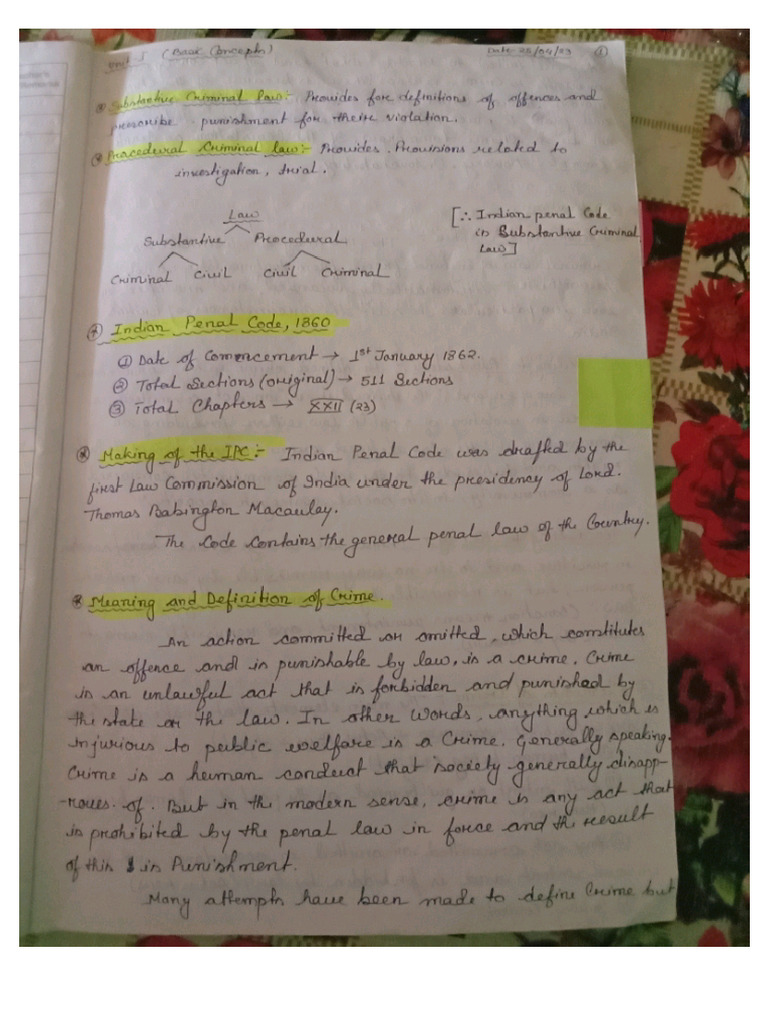 Unit-I (Basic Concepts) Date-25/04/23 ①
Substantive Criminal law:- Provides for definitions of offences and
prescribe punishment for their violation.
Procedural Criminal law:- Provides Provisions related to
investigation, trial.
Law
Substantive Procedural
Criminal Civil Civil Criminal
[∴ Indian penal Code
is Substantive Criminal
Law]
Indian Penal Code, 1860
① Date of Commencement → 1st January 1862.
② Total Sections (original) → 511 Sections
③ Total Chapters → XXII (23)
Making of the IPC:- Indian Penal Code was drafted by the
first Law Commission of India under the presidency of Lord.
Thomas Babington Macaulay.
The Code contains the general penal law of the Country.
Meaning and Definition of Crime.
An action committed or omitted, which constitutes
an offence and is punishable by law, is a crime. Crime
is an unlawful act that is forbidden and punished by
the state or the law. In other words, anything which is
injurious to public welfare is a Crime. Generally speaking.
Crime is a human conduct that society generally disapp-
-roves of. But in the modern sense, crime is any act that
is prohibited by the penal law in force and the result
of this is Punishment.
Many attempts have been made to define Crime but